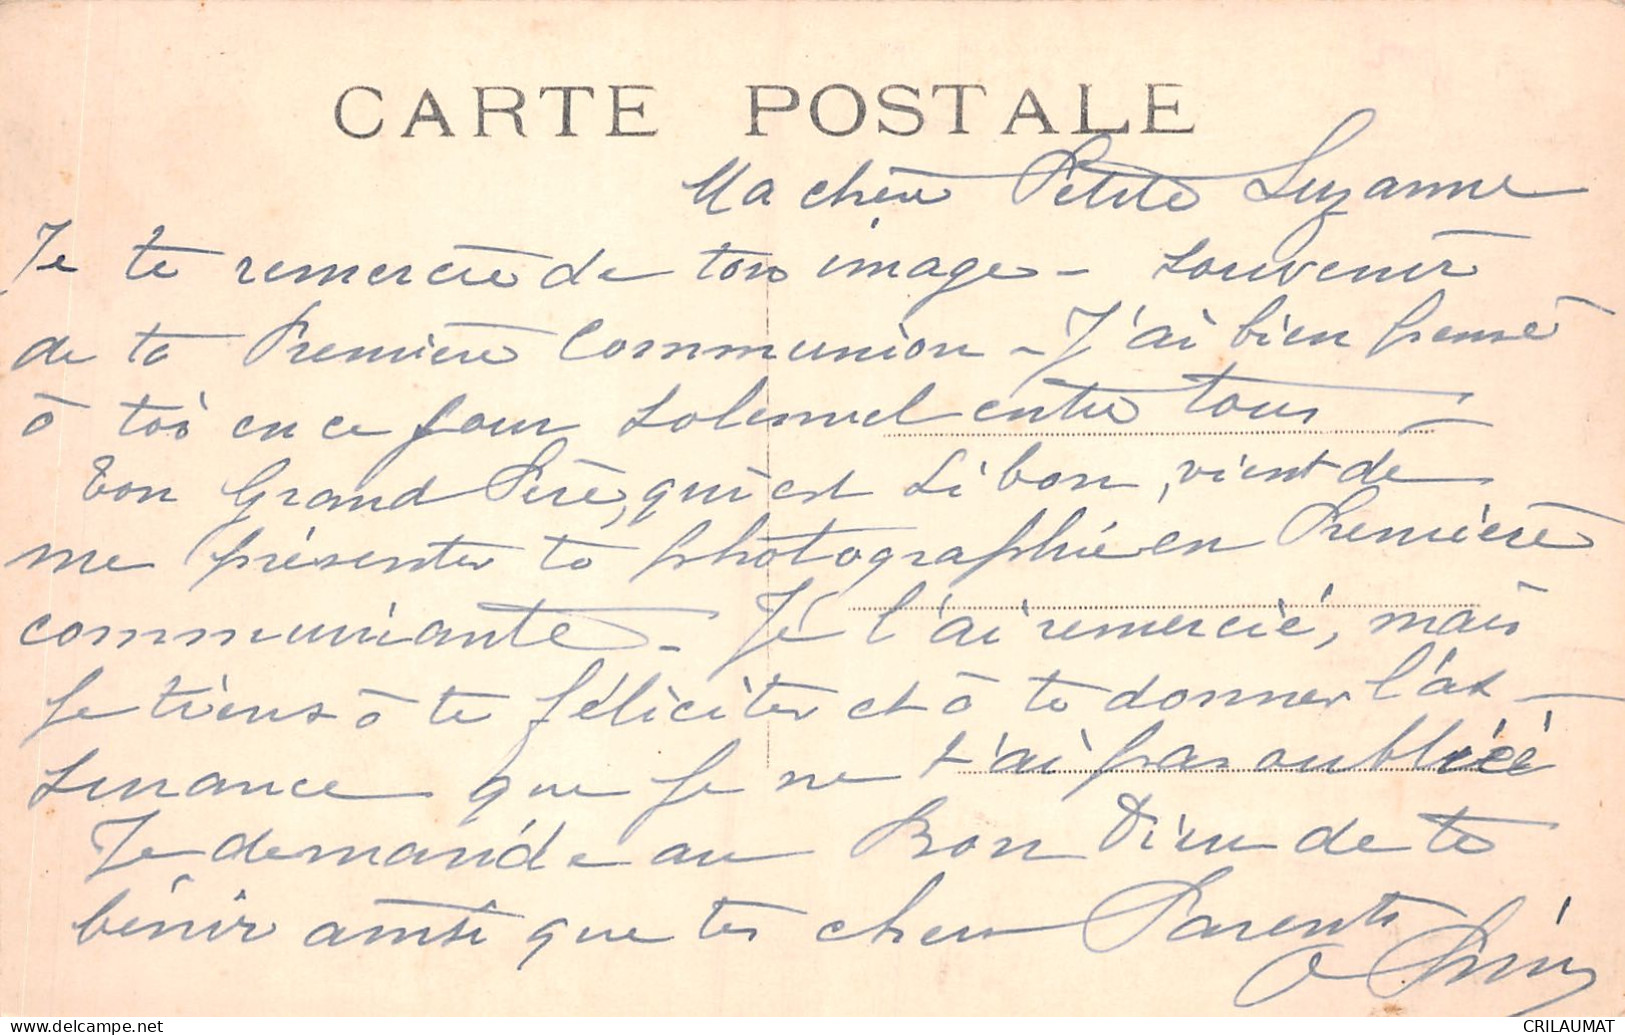 CARTE POSTALE
Ma chère Petite Suzanne
Je te remercie de ton image - souvenir
de ta Première Communion - J'ai bien pensé
à toi en ce jour solennel entre tous -
Ton Grand Père, qui est si bon, vient de
me présenter ta photographie en Première
communiante - Je l'ai remercié, mais
je tiens à te féliciter et à te donner l'as-
surance que je ne t'ai pas oubliée
Je demande au Bon Dieu de te
bénir ainsi que tes chers Parents
CRILAUMAT